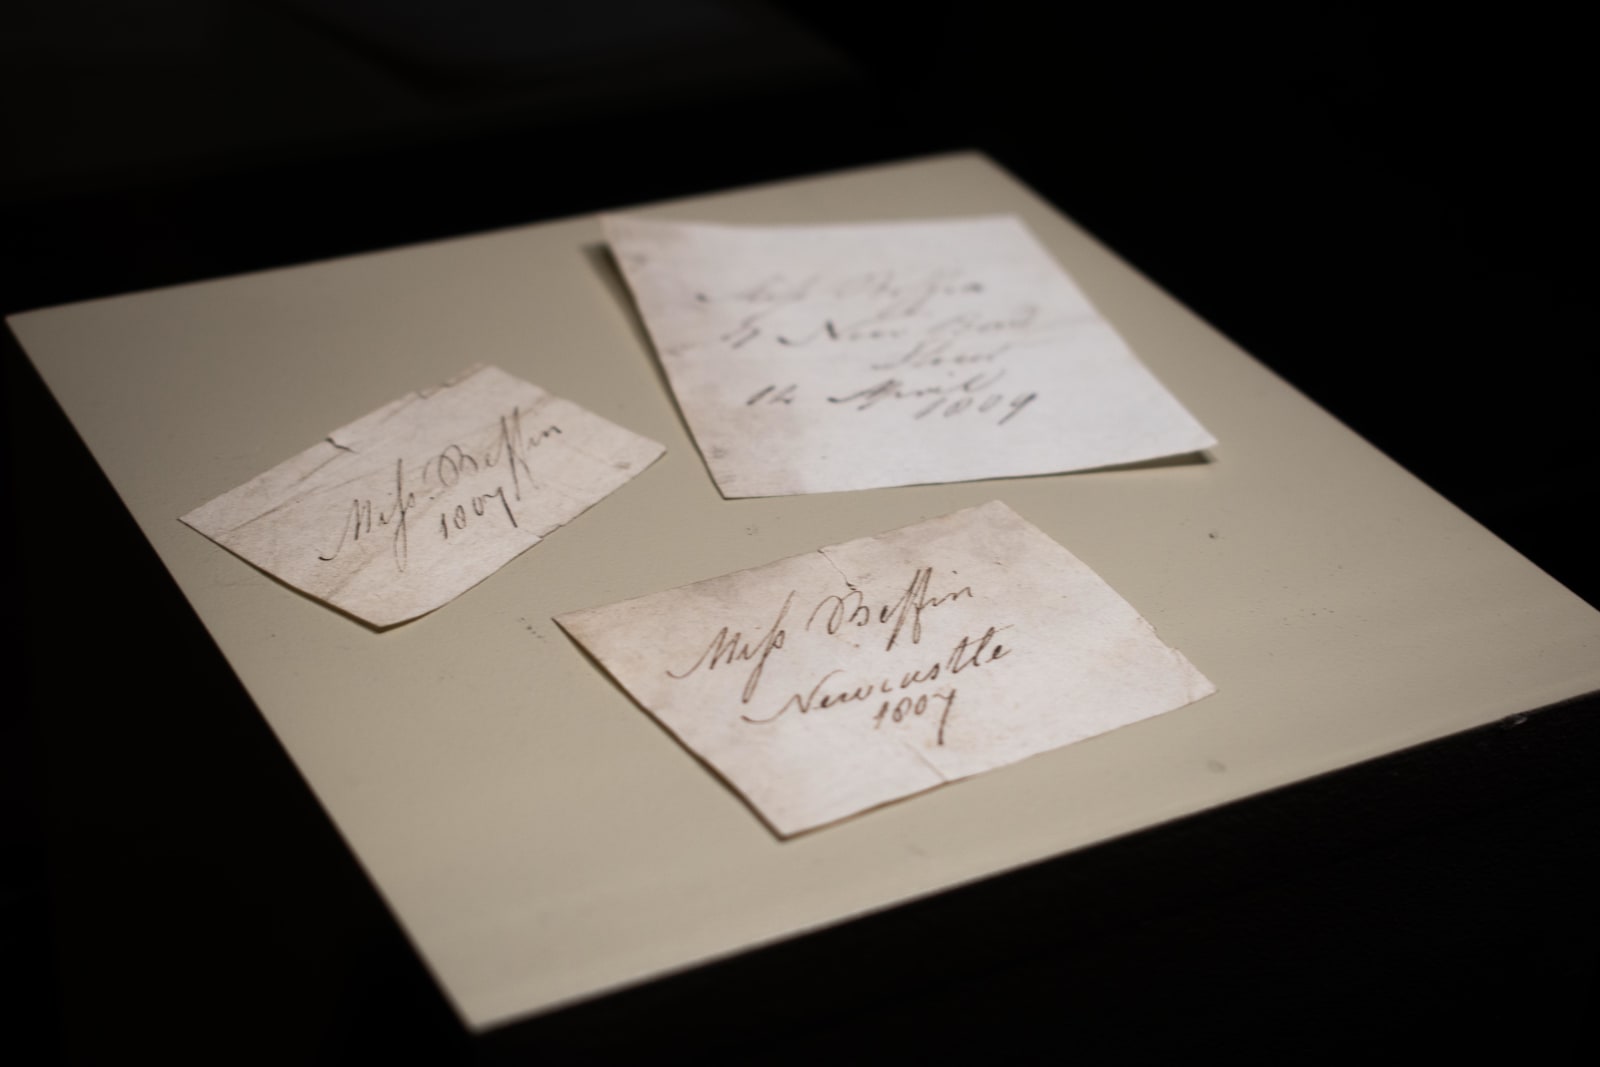 Miss Beffin
4 New Bond
Street
12 April
1809
Miss Beffin
1807
Miss Beffin
Newcastle
1807